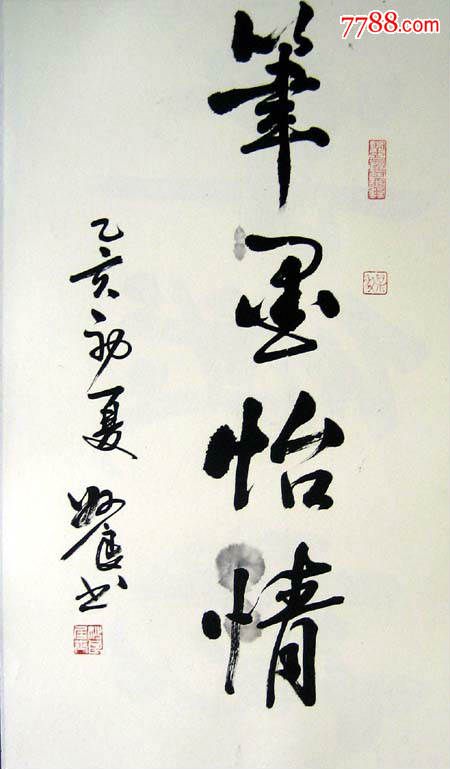 7788.com
筆墨怡情
乙亥初夏
書